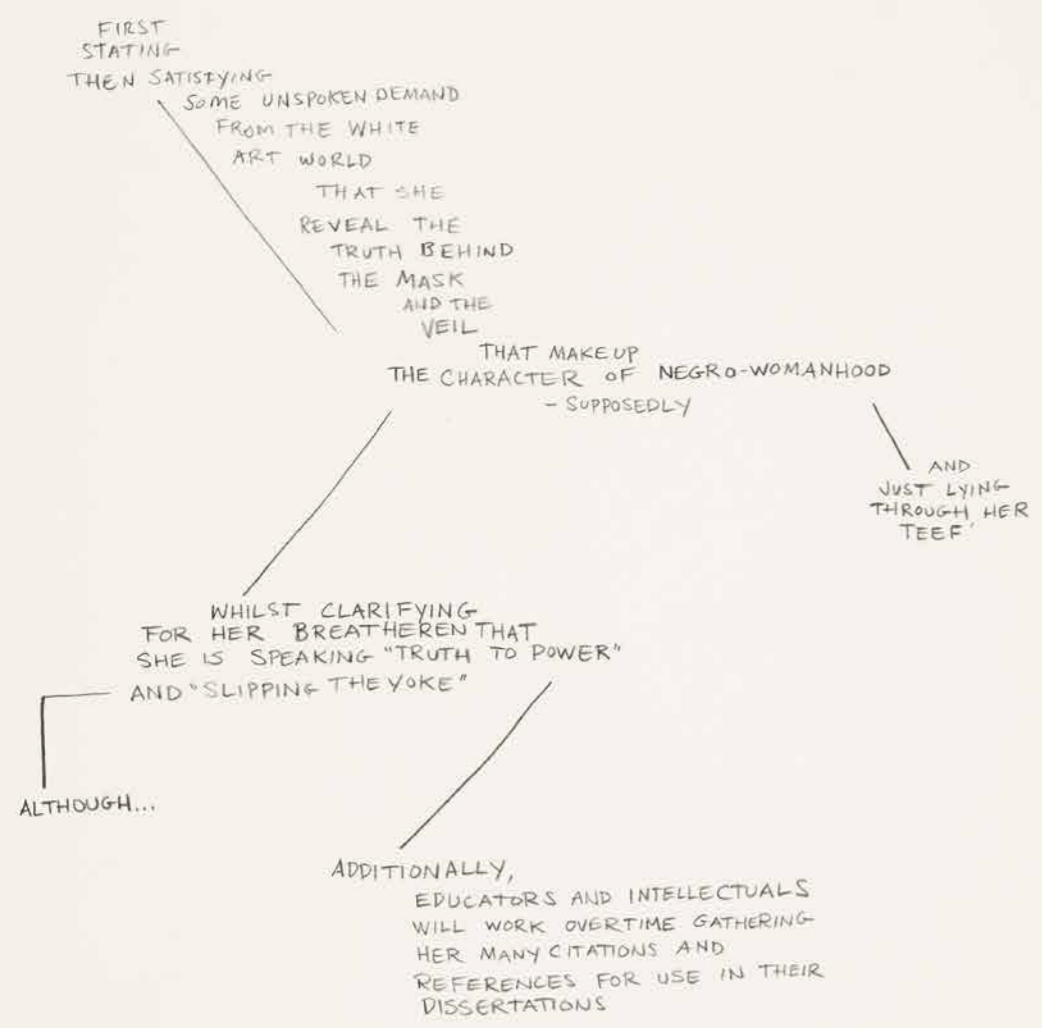 FIRST
STATING
THEN SATISFYING
SOME UNSPOKEN DEMAND
FROM THE WHITE
ART WORLD
THAT SHE
REVEAL THE
TRUTH BEHIND
THE MASK
AND THE
VEIL
THAT MAKE UP
THE CHARACTER OF NEGRO-WOMANHOOD
- SUPPOSEDLY
AND
JUST LYING
THROUGH HER
TEEF'
WHILST CLARIFYING
FOR HER BREATHEREN THAT
SHE IS SPEAKING "TRUTH TO POWER"
AND "SLIPPING THE YOKE"
ALTHOUGH...
ADDITIONALLY,
EDUCATORS AND INTELLECTUALS
WILL WORK OVERTIME GATHERING
HER MANY CITATIONS AND
REFERENCES FOR USE IN THEIR
DISSERTATIONS